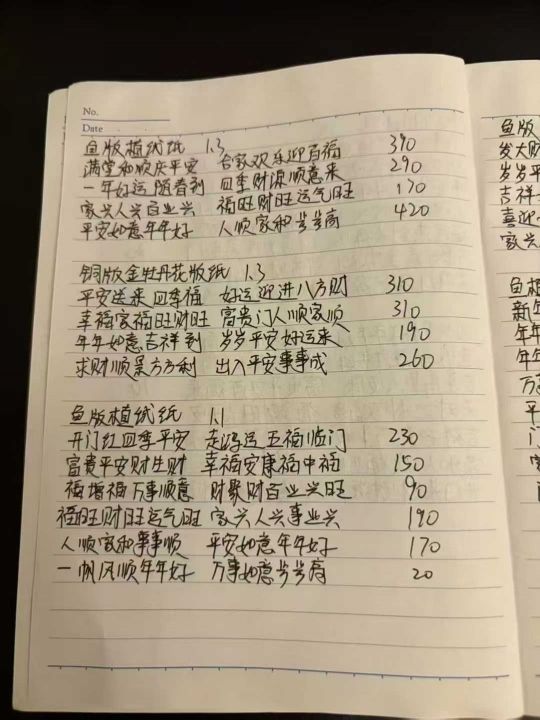 No.
Date
鱼版植绒纸 1.3 390
满堂和顺庆平安 合家欢乐迎百福 290
一年好运随春到 四季财源顺意来 170
家兴人兴百业兴 福旺财旺运气旺 420
平安如意年年好 人顺家和步步高
铜版金牡丹花版纸 1.3
平安送来四季福 好运迎进八方财 310
幸福家福旺财旺 富贵门人顺家顺 310
年年如意吉祥到 岁岁平安好运来 190
求财顺景方方利 出入平安事事成 260
鱼版植绒纸 1.1
开门红四季平安 走鸿运五福临门 230
富贵平安财生财 幸福安康福中福 150
福增福万事顺意 财聚财百业兴旺 90
福旺财旺运气旺 家兴人兴事业兴 190
人顺家和事事顺 平安如意年年好 170
一帆风顺年年好 万事如意步步高 20
鱼版
发大财
岁岁平
吉祥
喜迎
家兴
鱼植
新年
年年
年年
万事
平
门